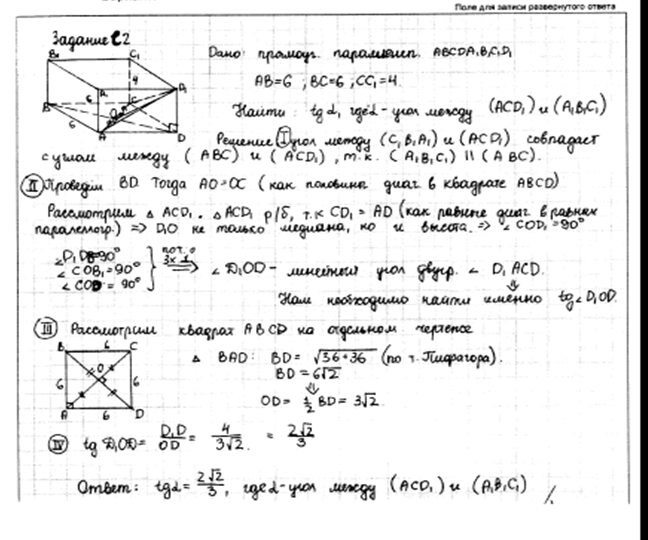 Поле для записи развернутого ответа
Задание С2
Дано: прямоуг. параллелеп. ABCDA₁B₁C₁D₁
AB=6 ; BC=6 ; CC₁=4.
Найти: tg α, где α - угол между (ACD₁) и (A₁B₁C₁)
B₁ C₁ A₁ D₁ 4 B 6 C O 6 A D
Решение: I угол между (C₁B₁A₁) и (ACD₁) совпадает
с углом между (ABC) и (ACD₁), т.к. (A₁B₁C₁) || (ABC).
II Проведём BD. Тогда AO=OC (как половины диаг в квадрате ABCD)
Рассмотрим △ ACD₁. △ ACD₁ р/б, т.к CD₁ = AD (как равные диаг в равных
параллелогр.) => D₁O не только медиана, но и высота. => ∠ COD₁ = 90°
∠D₁D =90°
∠ COB₁ = 90°
∠ COD = 90°
по т. о 3х ⊥ => ∠ D₁OD - линейный угол двугр. ∠ D₁ACD.
⇓
Нам необходимо найти именно tg∠D₁OD.
III Рассмотрим квадрат ABCD на отдельном чертеже
B 6 C
O
6 6
A 6 D
△ BAD: BD = √36+36 (по т. Пифагора).
BD = 6√2
⇓
OD = 1/2 BD = 3√2.
IV tg D₁OD = D₁D/OD = 4/3√2 = 2√2/3
Ответ: tg α = 2√2/3, где α - угол между (ACD₁) и (A₁B₁C₁)